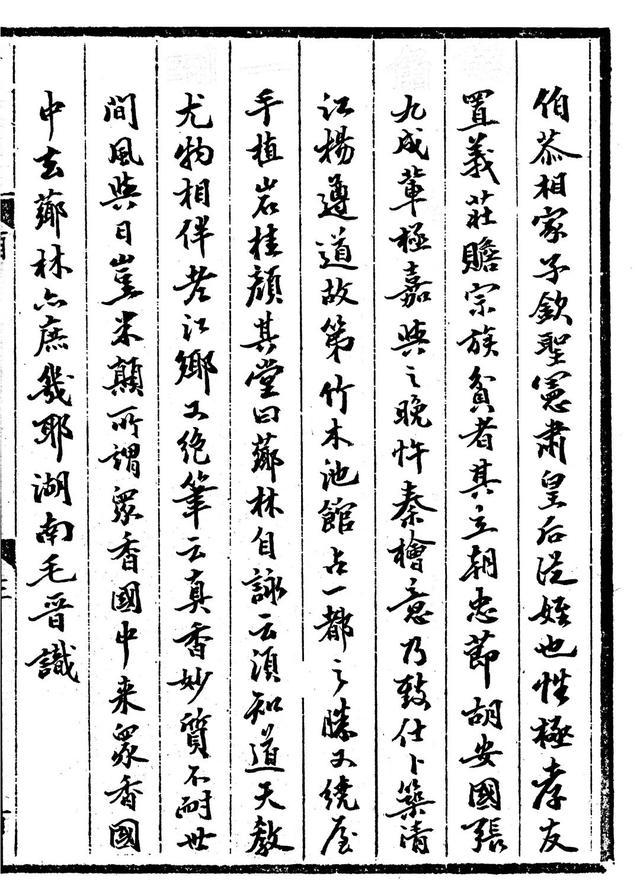 伯恭相家子欽聖憲肅皇后從姪也性極孝友
置義莊贍宗族貧者其立朝忠節胡安國張
九成輩極嘉與之晚忤秦檜意乃致仕卜築清
江楊遵道故第竹木池館占一都之勝又繞屋
手植岩桂顏其堂曰薌林自詠云須知道天教
尤物相伴老江鄉又絕筆云真香妙質不耐世
間風與日豈米顛所謂眾香國中来眾香國
中去薌林亦庶幾耶湖南毛晉識